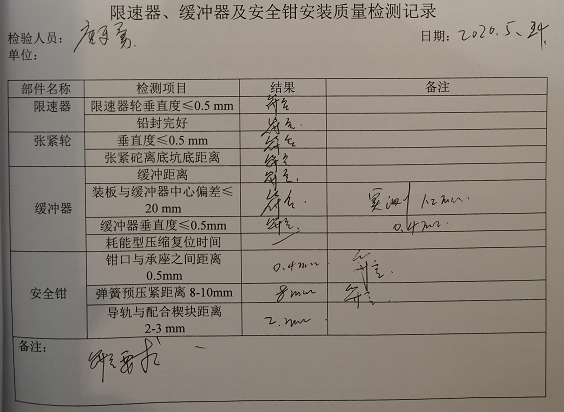 限速器、缓冲器及安全钳安装质量检测记录
检验人员: 日期: 2020.5.
单位:
部件名称 检测项目 结果 备注
限速器 限速器轮垂直度≤0.5 mm 符合
铅封完好 符合
张紧轮 垂直度≤0.5 mm 符合
张紧砣离底坑底距离 符合
缓冲器 缓冲距离 符合
装板与缓冲器中心偏差≤20 mm 符合 实测 12mm
缓冲器垂直度≤0.5mm 符合 0.4mm
耗能型压缩复位时间 —
安全钳 钳口与承座之间距离 0.5mm 0.4mm 符合
弹簧预压紧距离 8-10mm 8mm 符合
导轨与配合楔块距离 2-3 mm 2mm
备注:
符合要求